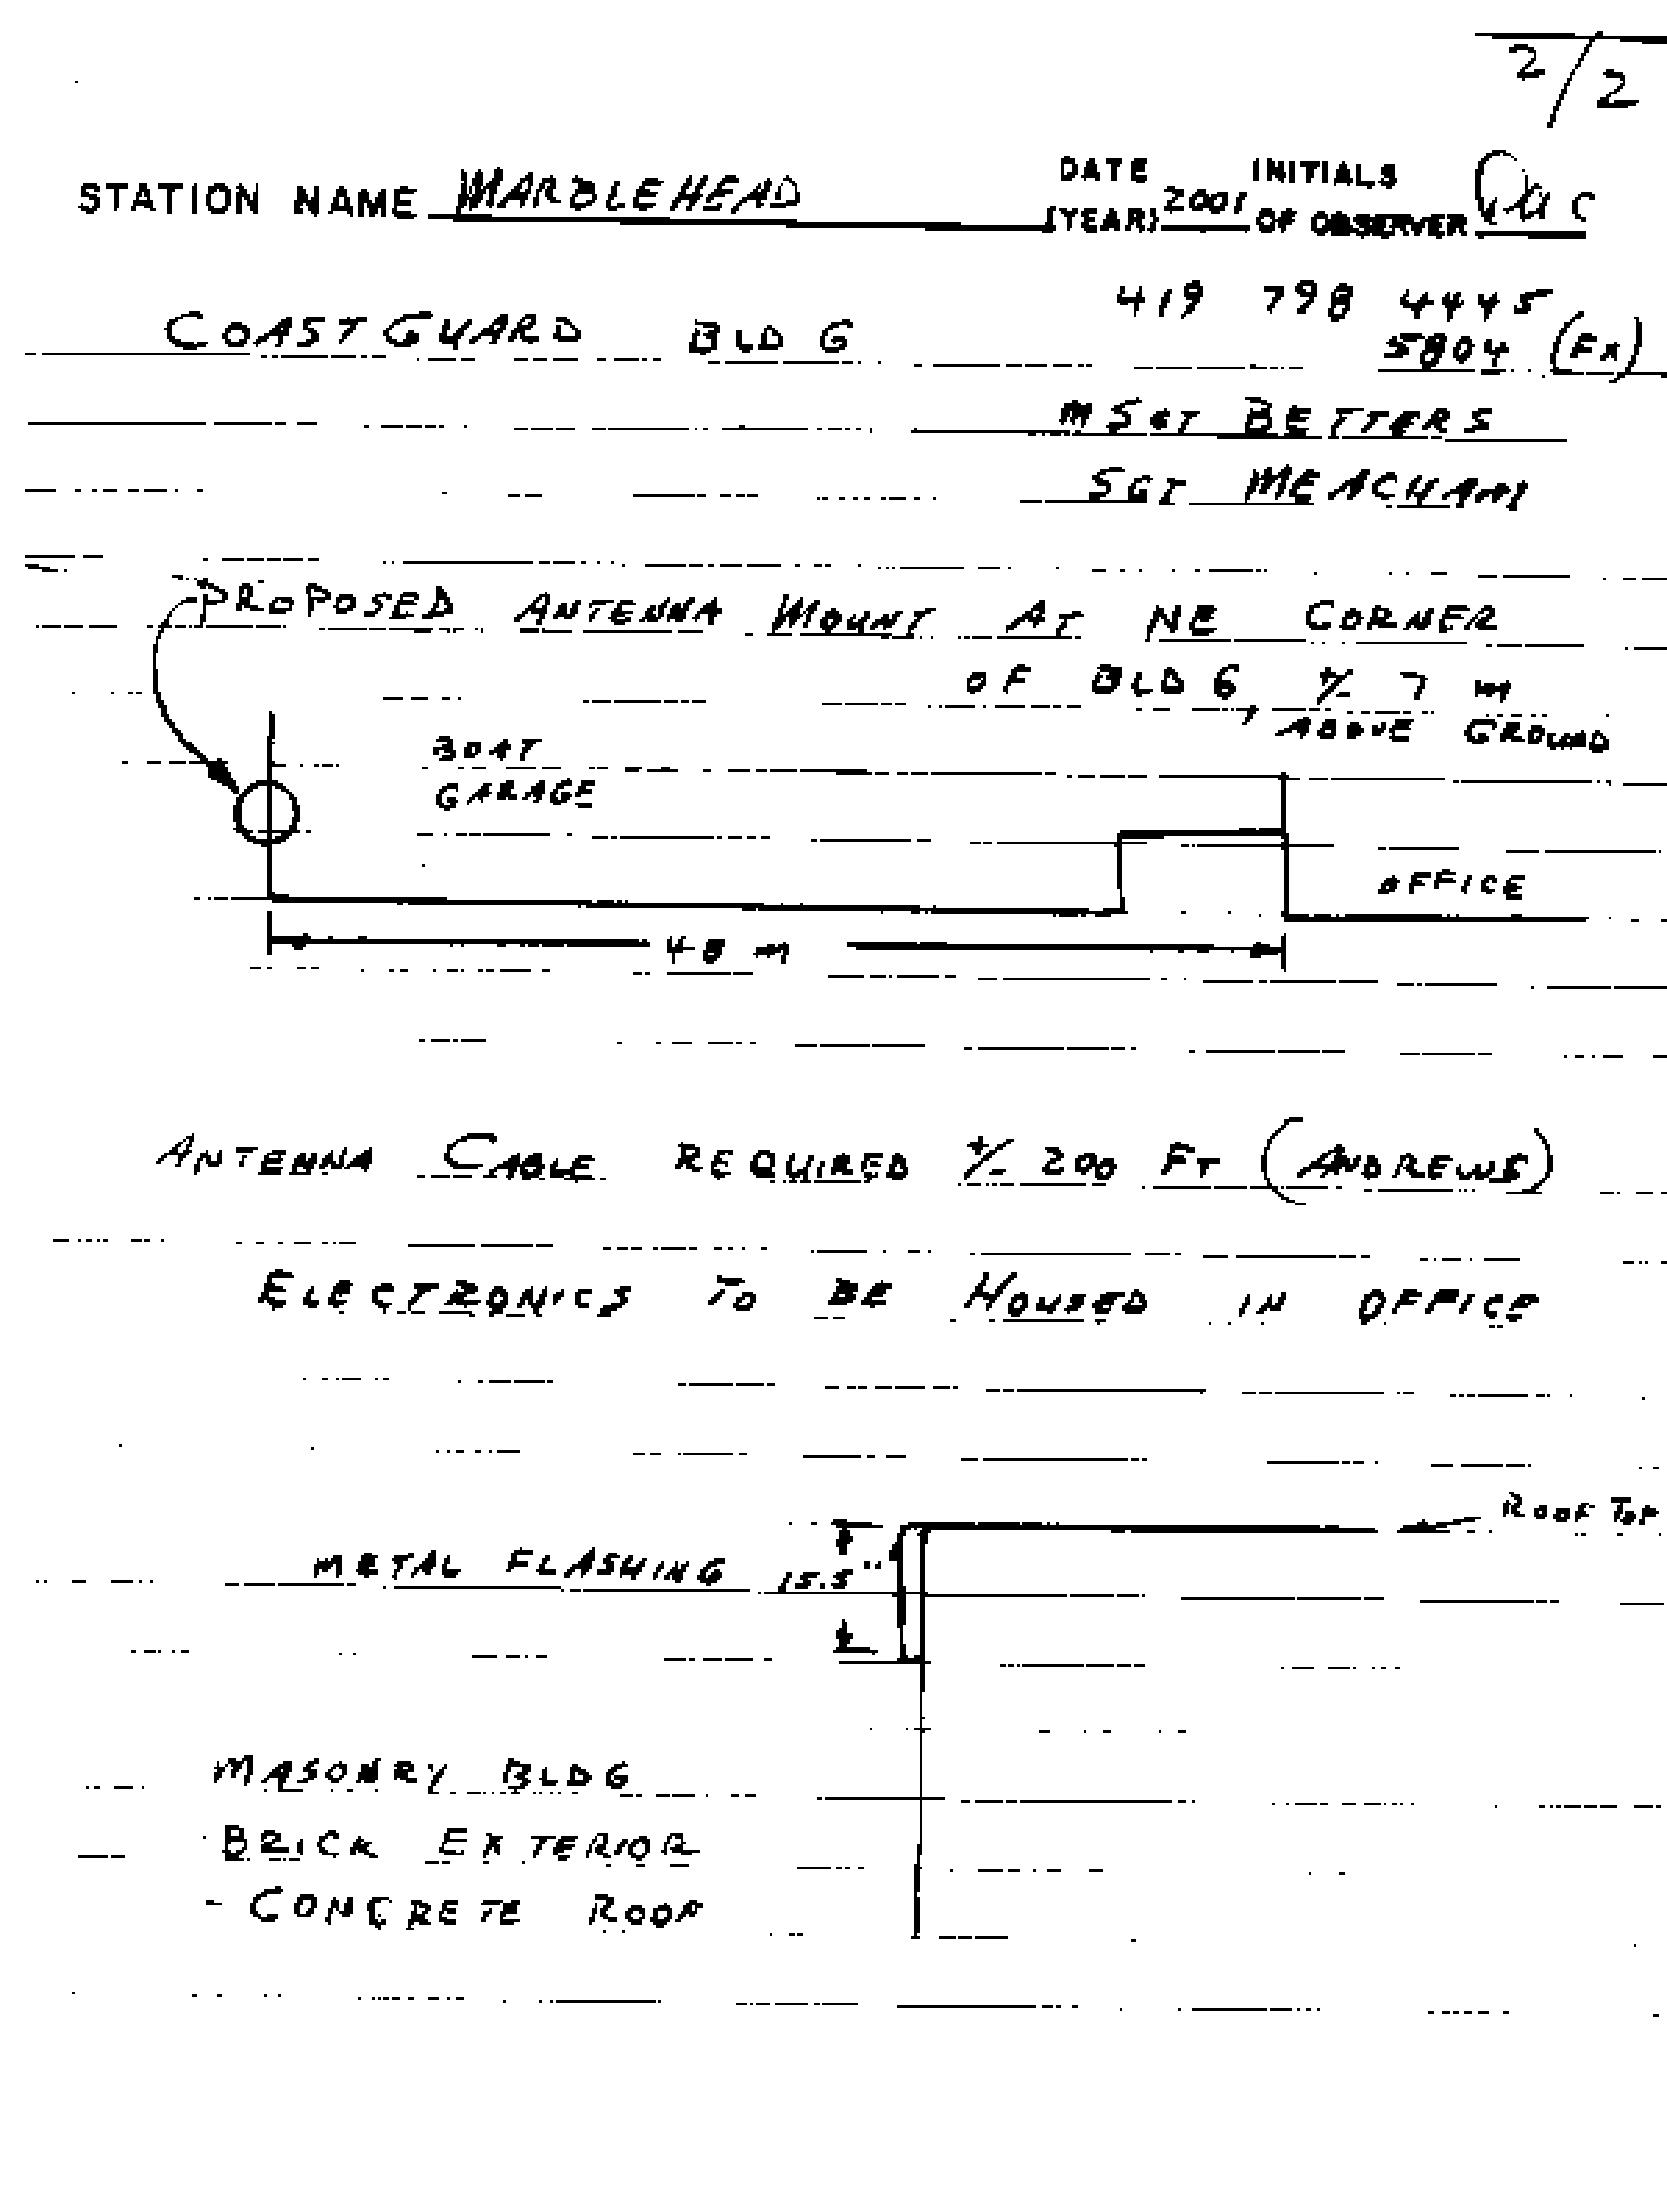 2/2
STATION NAME MARBLEHEAD DATE (YEAR) 2001 INITIALS OF OBSERVER
419 798 4445
COAST GUARD BLDG 5804 (FX)
MSGT BETTERS
SGT MEACHAM
PROPOSED ANTENNA MOUNT AT NE CORNER
OF BLDG, +/- 7 m
ABOVE GROUND
BOAT
GARAGE
OFFICE
48 m
ANTENNA CABLE REQUIRED +/- 200 FT (ANDREWS)
ELECTRONICS TO BE HOUSED IN OFFICE
ROOF TOP
METAL FLASHING 15.5"
MASONRY BLDG
- BRICK EXTERIOR
- CONCRETE ROOF